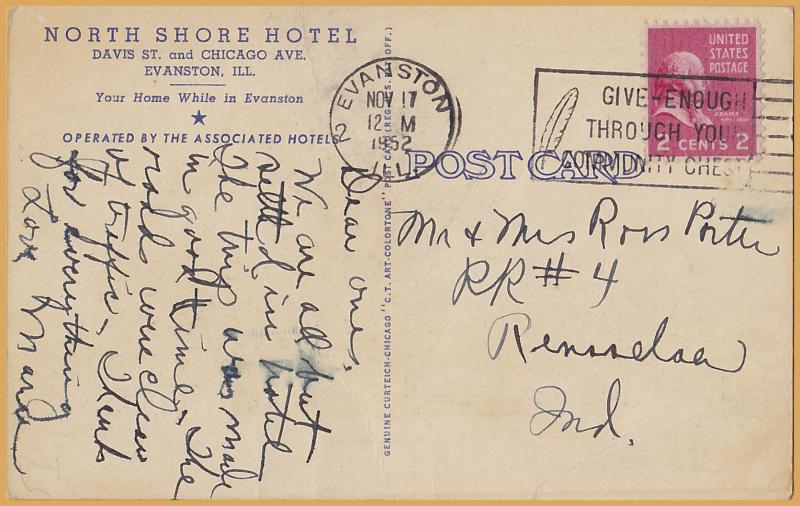 NORTH SHORE HOTEL
DAVIS ST. and CHICAGO AVE.
EVANSTON, ILL.
Your Home While in Evanston
OPERATED BY THE ASSOCIATED HOTELS
Dear ones,
We are all but
settld in hotel
The trip was made
in good time. The
roads were clear
of traffic. Thanks
for everything
Love
GENUINE CURTEICH-CHICAGO "C.T. ART-COLORTONE" POST CARD (REG. U.S. PAT. OFF.)
EVANSTON
NOV 17
12 M
1952
ILL.
2
GIVE-ENOUGH
THROUGH YOUR
COMMUNITY CHEST
UNITED
STATES
POSTAGE
ADAMS
2 CENTS 2
POST CARD
Mr & Mrs Ross Porter
RR # 4
Rensselaer
Ind.